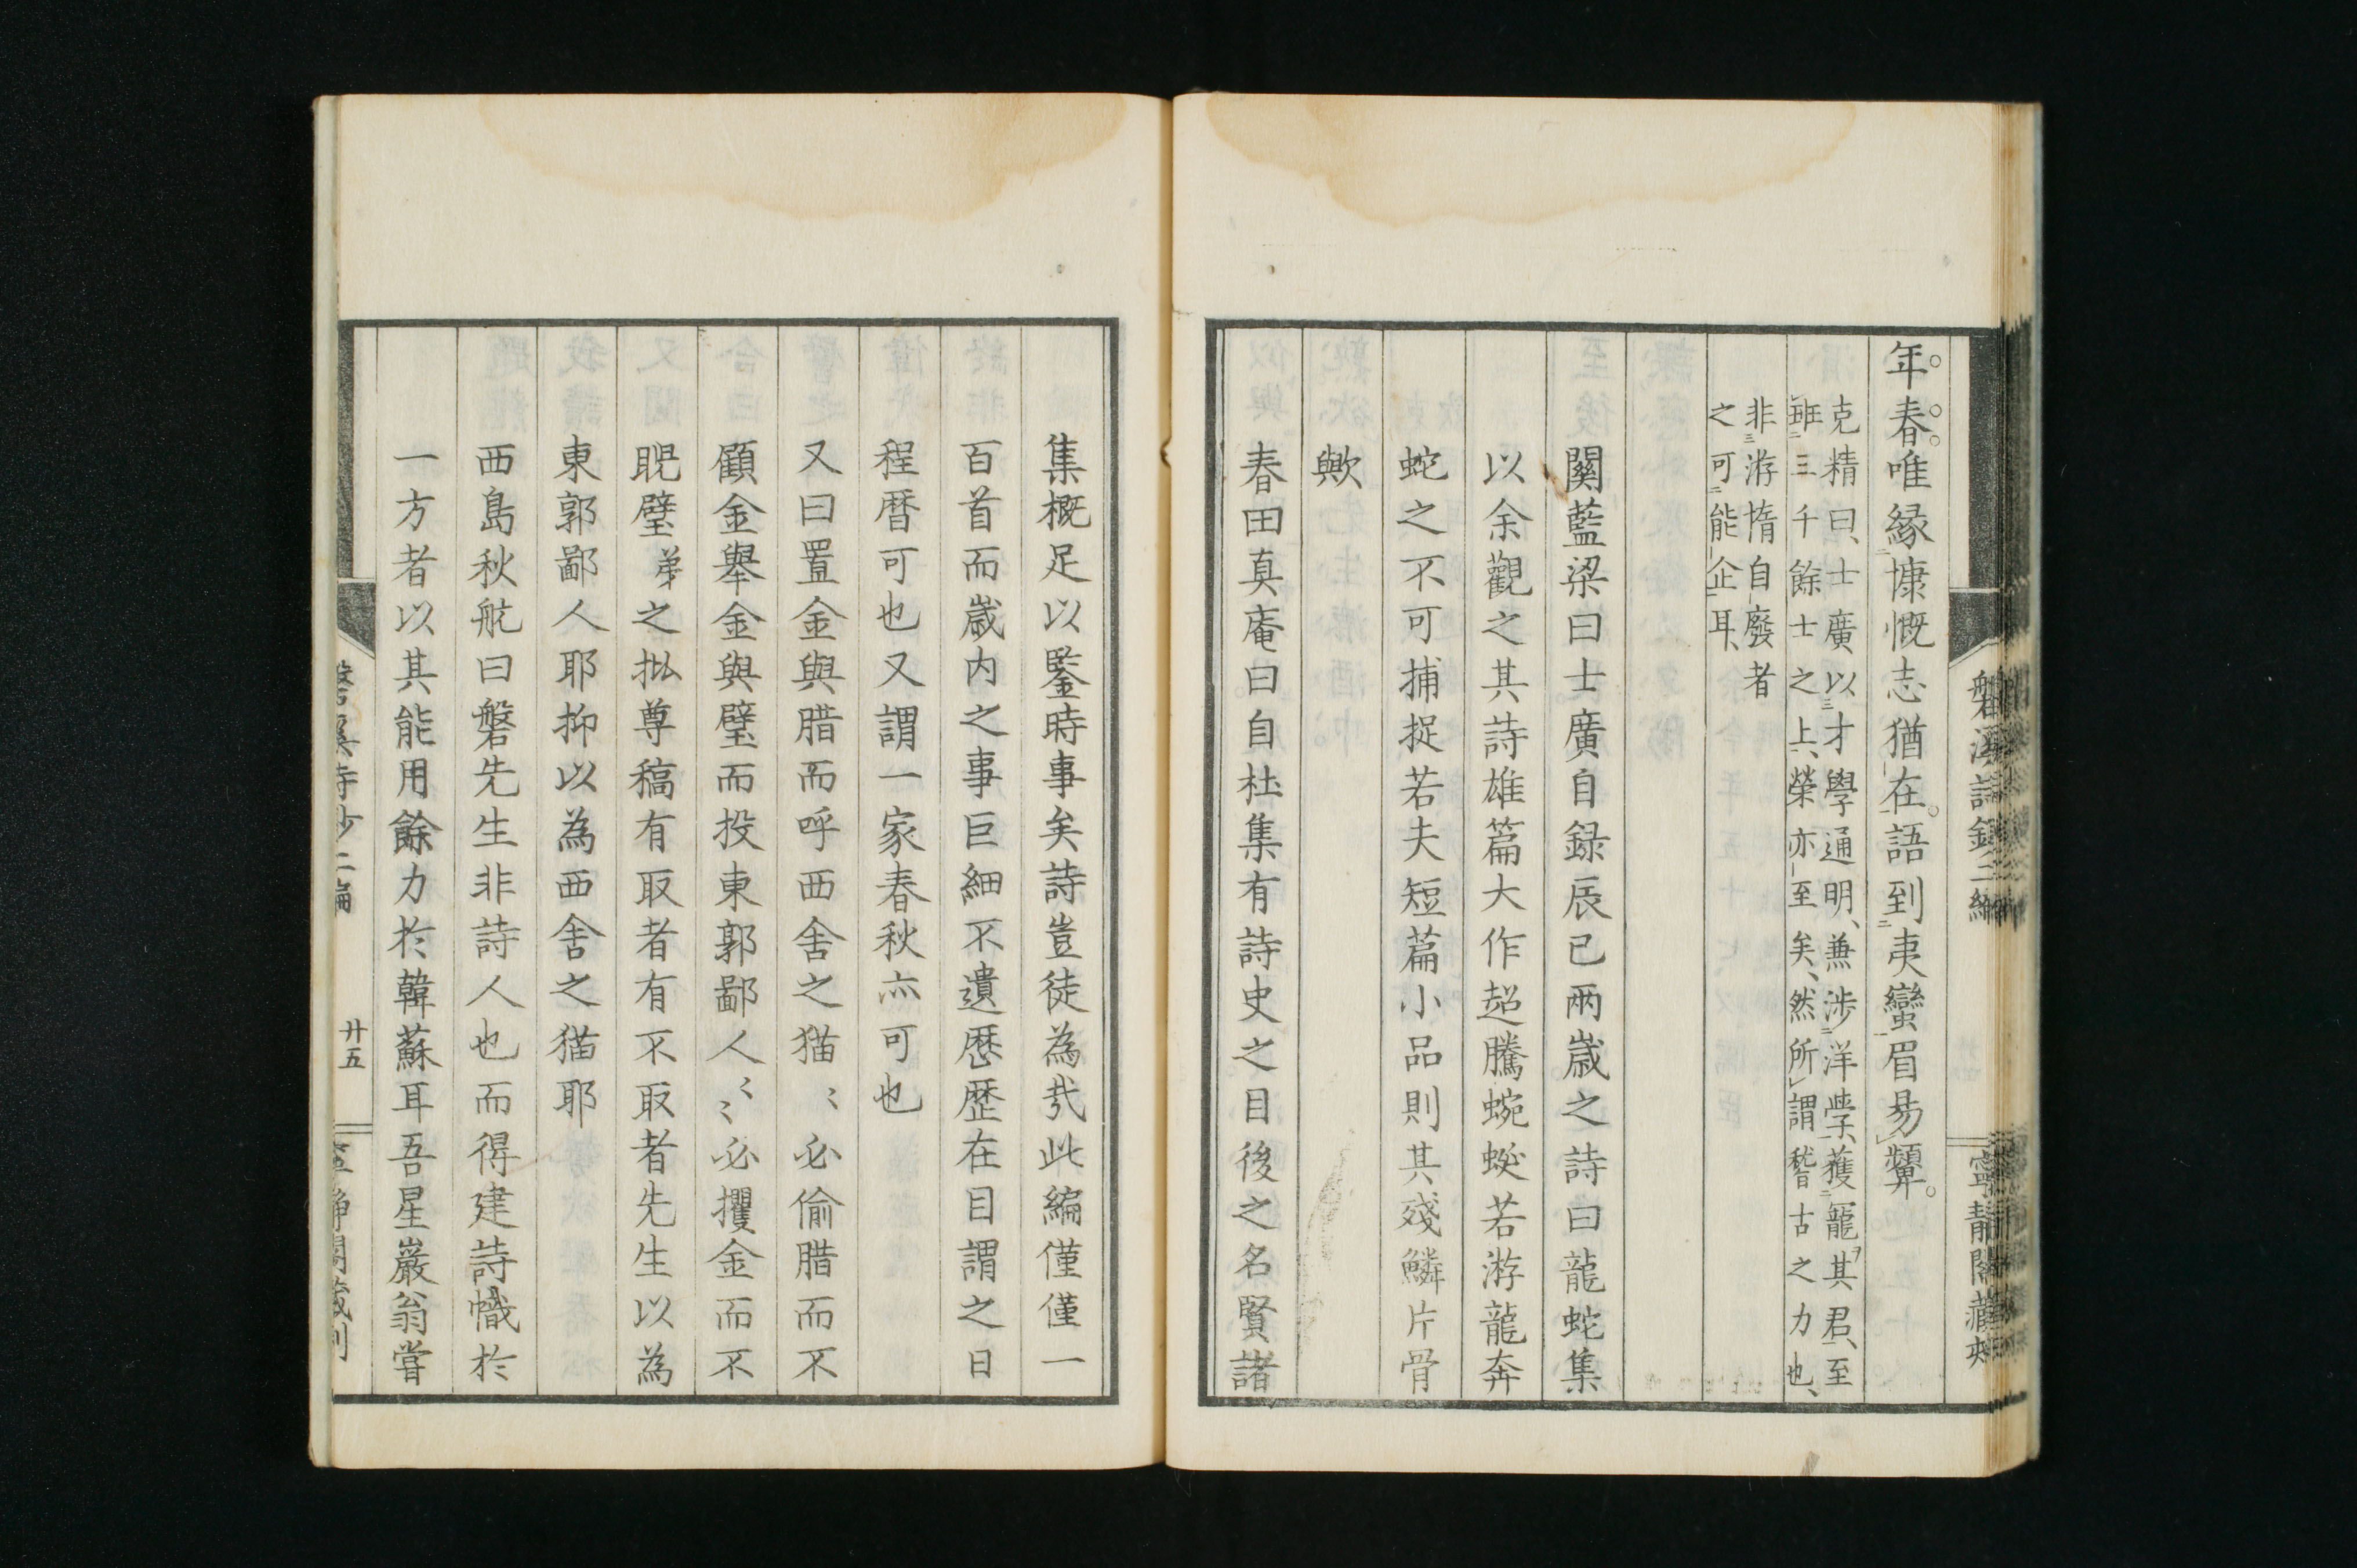 年春唯緣慷慨志猶在語到夷蠻眉易顰
克精曰士廣以才學通明兼涉洋学獲寵其君至
班三千餘士之上榮亦至矣然所謂稽古之力也
非游惰自廢者
之可能企耳
關藍梁曰士廣自録辰巳兩歲之詩曰龍蛇集
以余觀之其詩雄篇大作超騰蜿蜒若游龍奔
蛇之不可捕捉若夫短篇小品則其殘鱗片骨
歟
春田真庵曰自杜集有詩史之目後之名賢諸
集概足以鑒時事矣詩豈徒為哉此編僅僅一
百首而歲内之事巨細不遺歷歷在目謂之日
程暦可也又謂一家春秋亦可也
又曰置金與腊而呼西舍之猫〻必偷腊而不
顧金舉金與璧而投東郭鄙人〻〻必攫金而不
睨璧弟之批尊稿有取者有不取者先生以為
東郭鄙人耶抑以為西舍之猫耶
西島秋航曰磐先生非詩人也而得建詩幟於
一方者以其能用餘力於韓蘇耳吾星巖翁嘗
廿五